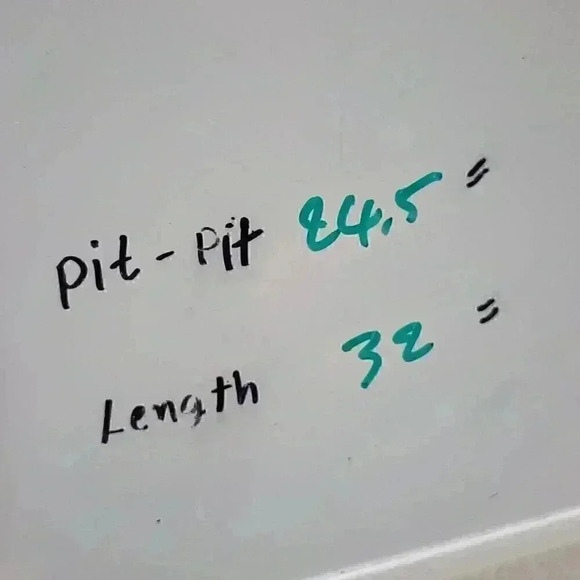 pit - pit 24.5 "
Length 32 "